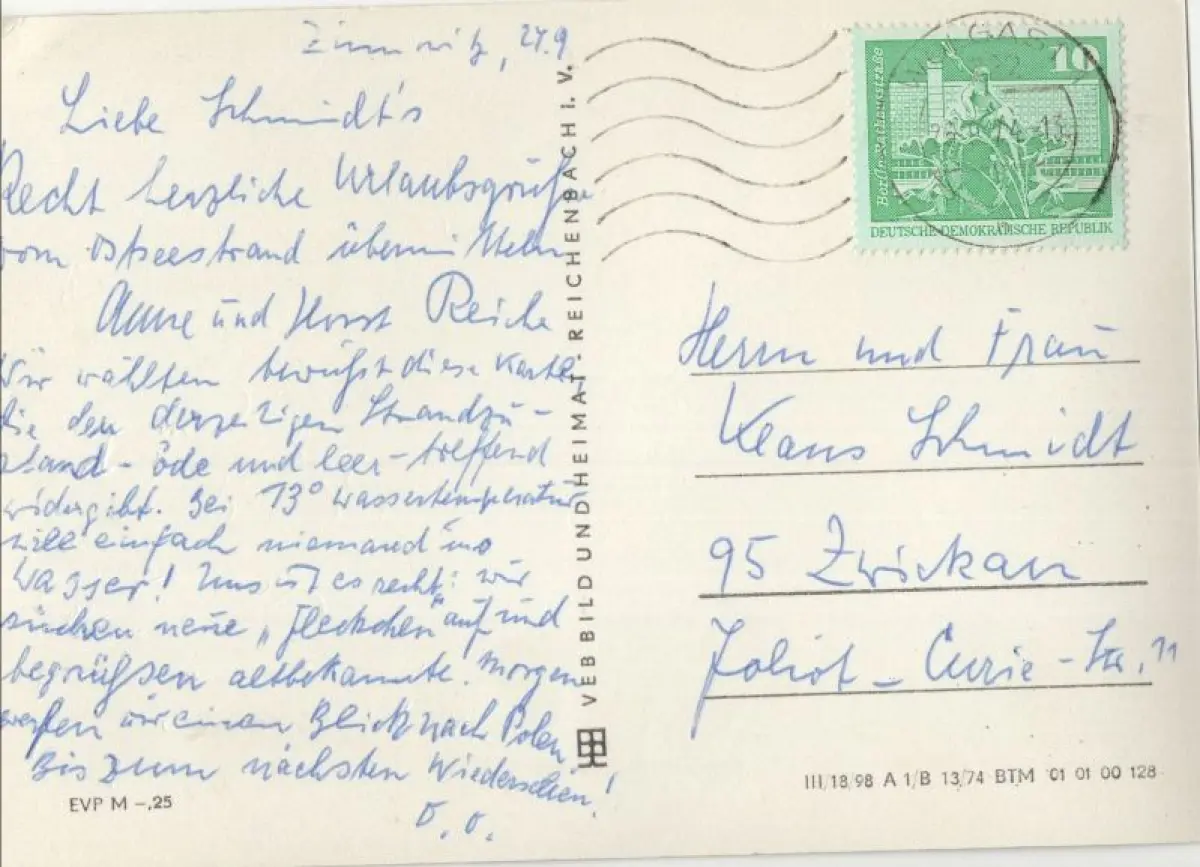 Zinnowitz, 24.9
Liebe Schmidt's
Recht herzliche Urlaubsgrüße
vom Ostseestrand übermitteln
und Horst Reiche
Wir wählten bewußt diese Karte
die den derzeitigen Strandzu-
stand - öde und leer - treffend
widergibt. Bei 13° Wassertemperatur
will einfach niemand ins
Wasser! Uns ist es recht: wir
suchen neue „Fleckchen" auf und
begrüßen altbekannte. Morgen
werfen wir einen Blick nach Polen
Bis zum nächsten Wiedersehen!
D. O.
EVP M -,25
VEB BILD UND HEIMAT · REICHENBACH i. V.
WOLGAST
10
Berlin, Rathausstraße
DEUTSCHE DEMOKRATISCHE REPUBLIK
Herrn und Frau
Klaus Schmidt
95 Zwickau
Joliot-Curie-Str. 11
III/18/98 A 1/B 13/74 BTM 01 01 00 128